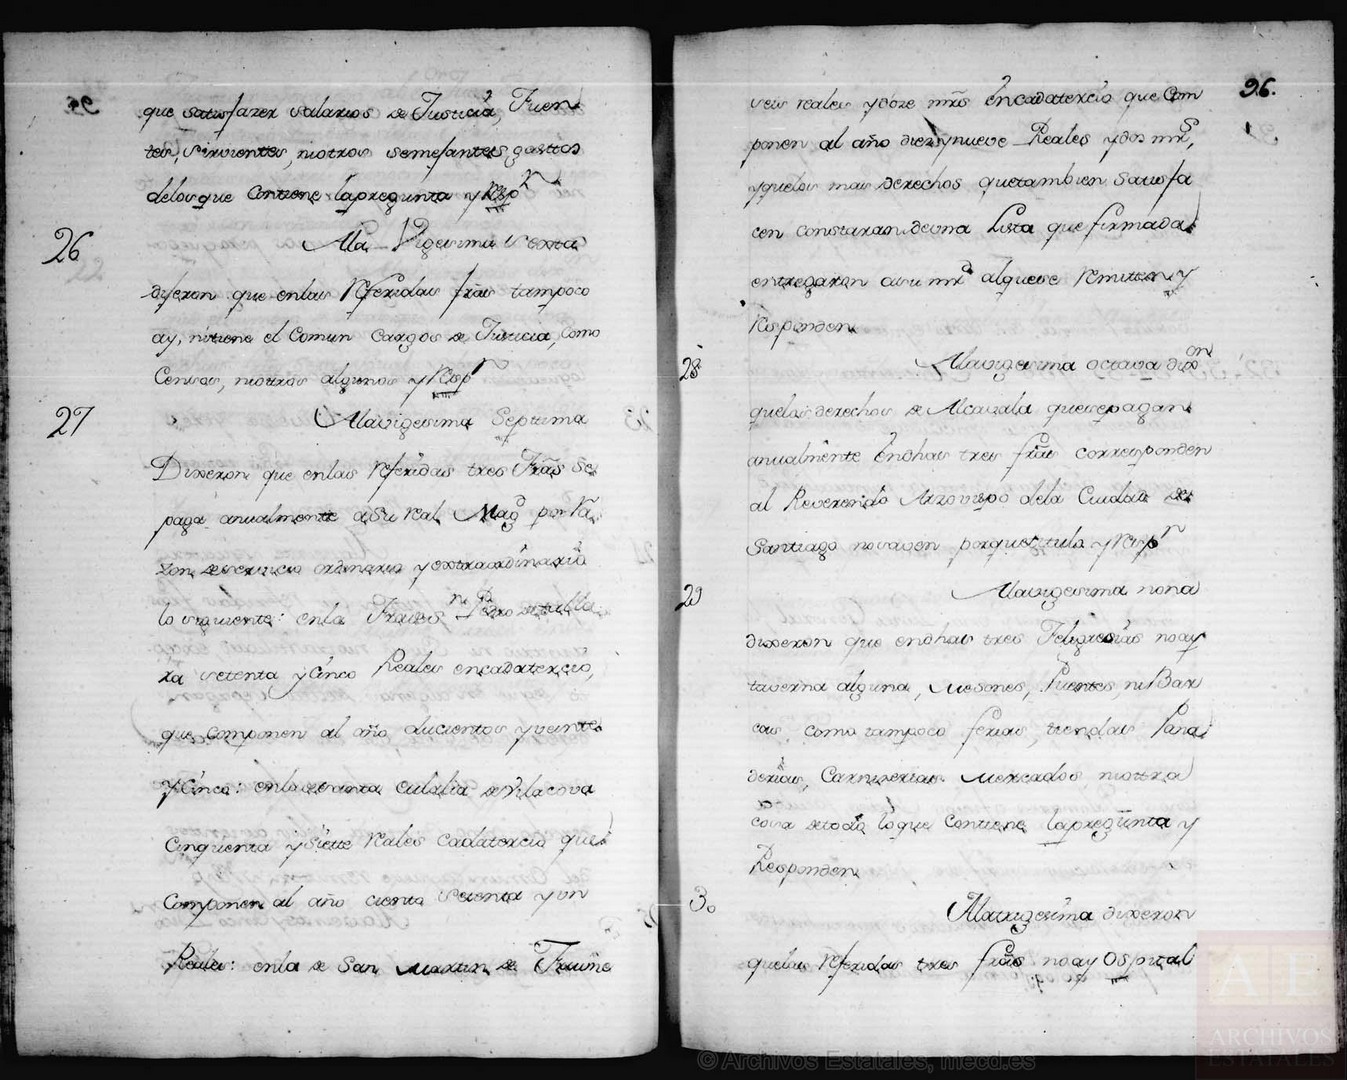 que satisfazer salarios de Justicia, Fuen
tes, sirvientes, niotros semejantes gastos
delosque Contiene lapregunta y Resp.n
26
Ala Vigesima sexta
dijeron que enlas Referidas frãs tampoco
ay, nitiene el Comun Cargos de Justicia, Como
Censos, niotros algunos y Resp.n
27
Alavigesima Septima
Dixeron que enlas Referidas tres Frãs se
paga anualmente a Su Real Mag.d por Ra
zon deservicio ordinario y extraordinario
lo siguiente: enla
ra setenta y Cinco Reales encadatercio,
que componen al año ducientos y veinte
y Cinco: enladesanta Eulalia de Vilacova
Cinquenta y Siette Reales Cadatercio que
Componen al año ciento setenta y un
Reales: enla de San Martin de
96.
seis reales y doze mrs encadatercio que Com
ponen al año diez y nueve Reales y dos mrs,
yquelos mas derechos quetambien satisfa
cen constaran deuna Lista que firmada
entregaron asu mrd alquese Remiten y
Responden
28
Alavigesima octava dix.on
quelos derechos de Alcavala quesepagan
anualmente Endhas tres frãs corresponden
al Reverendo Arzovispo dela Ciudad de
Santiago nosaven porquetitulo y Resp.n
29
Alavigesima nona
dixeron que endhas tres Feligresias no ay
taverna alguna, Mesones, Puentes, ni Bar
cas como tampoco ferias, tiendas Pana
derias, Carnizerias Mercados niotra
cosa detodo loque Contiene lapregunta y
Responden
30
Alatrigesima dixeron
quelas Referidas tres frãs no ay Ospital
© Archivos Estatales, mecd.es
AE
ARCHIVOS
ESTATALES